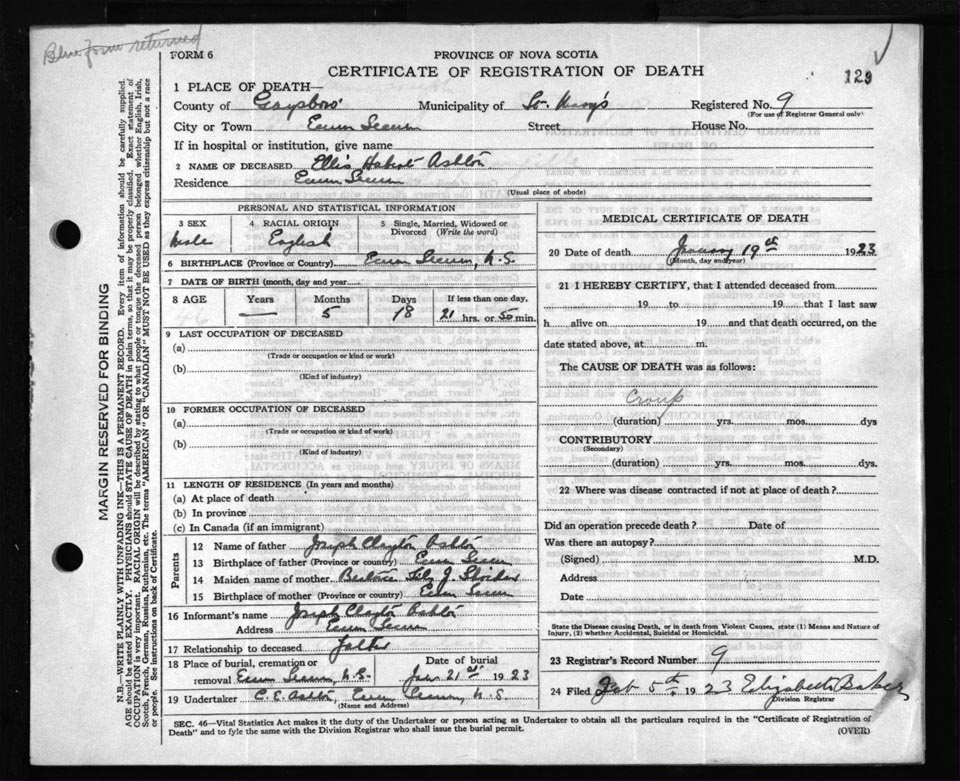 Blue form returned
FORM 6
PROVINCE OF NOVA SCOTIA
CERTIFICATE OF REGISTRATION OF DEATH
129
1 PLACE OF DEATH—
County of Gaysboro' Municipality of St. Mary's Registered No. 9
(For use of Registrar General only)
City or Town Ecum Secum Street House No.
If in hospital or institution, give name
2 NAME OF DECEASED Ellis Ashton
Residence Ecum Secum
(Usual place of abode)
PERSONAL AND STATISTICAL INFORMATION
3 SEX
Male
4 RACIAL ORIGIN
English
5 Single, Married, Widowed or Divorced (Write the word)
6 BIRTHPLACE (Province or Country) Ecum Secum, N.S.
7 DATE OF BIRTH (month, day and year)
8 AGE Years Months Days If less than one day,
— 5 18 21 hrs. or 50 min.
9 LAST OCCUPATION OF DECEASED
(a)
(Trade or occupation or kind or work)
(b)
(Kind of industry)
10 FORMER OCCUPATION OF DECEASED
(a)
(Trade or occupation or kind of work)
(b)
(Kind of industry)
11 LENGTH OF RESIDENCE (In years and months)
(a) At place of death
(b) In province
(c) In Canada (if an immigrant)
Parents
12 Name of father Joseph Clayton Ashton
13 Birthplace of father (Province or country) Ecum Secum
14 Maiden name of mother Beatrice J.
15 Birthplace of mother (Province or country) Ecum Secum
16 Informant's name Joseph Clayton Ashton
Address Ecum Secum
17 Relationship to deceased Father
18 Place of burial, cremation or removal Ecum Secum, N.S. Date of burial Jan. 21st 1923
19 Undertaker C. E. Ashton, Ecum Secum, N.S.
(Name and Address)
MEDICAL CERTIFICATE OF DEATH
20 Date of death January 19th 1923
(Month, day and year)
21 I HEREBY CERTIFY, that I attended deceased from
19 to 19 that I last saw
h alive on 19 and that death occurred, on the
date stated above, at m.
The CAUSE OF DEATH was as follows:
Croup
(duration) yrs. mos. dys
CONTRIBUTORY
(Secondary)
(duration) yrs. mos. dys.
22 Where was disease contracted if not at place of death?
Did an operation precede death? Date of
Was there an autopsy?
(Signed) M.D.
Address
Date
State the Disease causing Death, or in death from Violent Causes, state (1) Means and Nature of
Injury, (2) whether Accidental, Suicidal or Homicidal.
23 Registrar's Record Number 9
24 Filed Feb 5th, 1923 Elizabeth Baker
Division Registrar
SEC. 46—Vital Statistics Act makes it the duty of the Undertaker or person acting as Undertaker to obtain all the particulars required in the "Certificate of Registration of
Death" and to fyle the same with the Division Registrar who shall issue the burial permit.
(OVER)
MARGIN RESERVED FOR BINDING
N.B.—WRITE PLAINLY WITH UNFADING INK—THIS IS A PERMANENT RECORD. Every item of information should be carefully supplied.
AGE should be stated EXACTLY. PHYSICIANS should STATE CAUSE OF DEATH in plain terms, so that it may be properly classified. Exact statement of
OCCUPATION is very important. RACIAL ORIGIN will be described by stating to what people or tongue the deceased person belonged whether English, Irish,
Scotch, French, German, Russian, Ruthenian, etc. The terms "AMERICAN" OR "CANADIAN" MUST NOT BE USED as they express citizenship but not a race
or people. See instructions on back of Certificate.